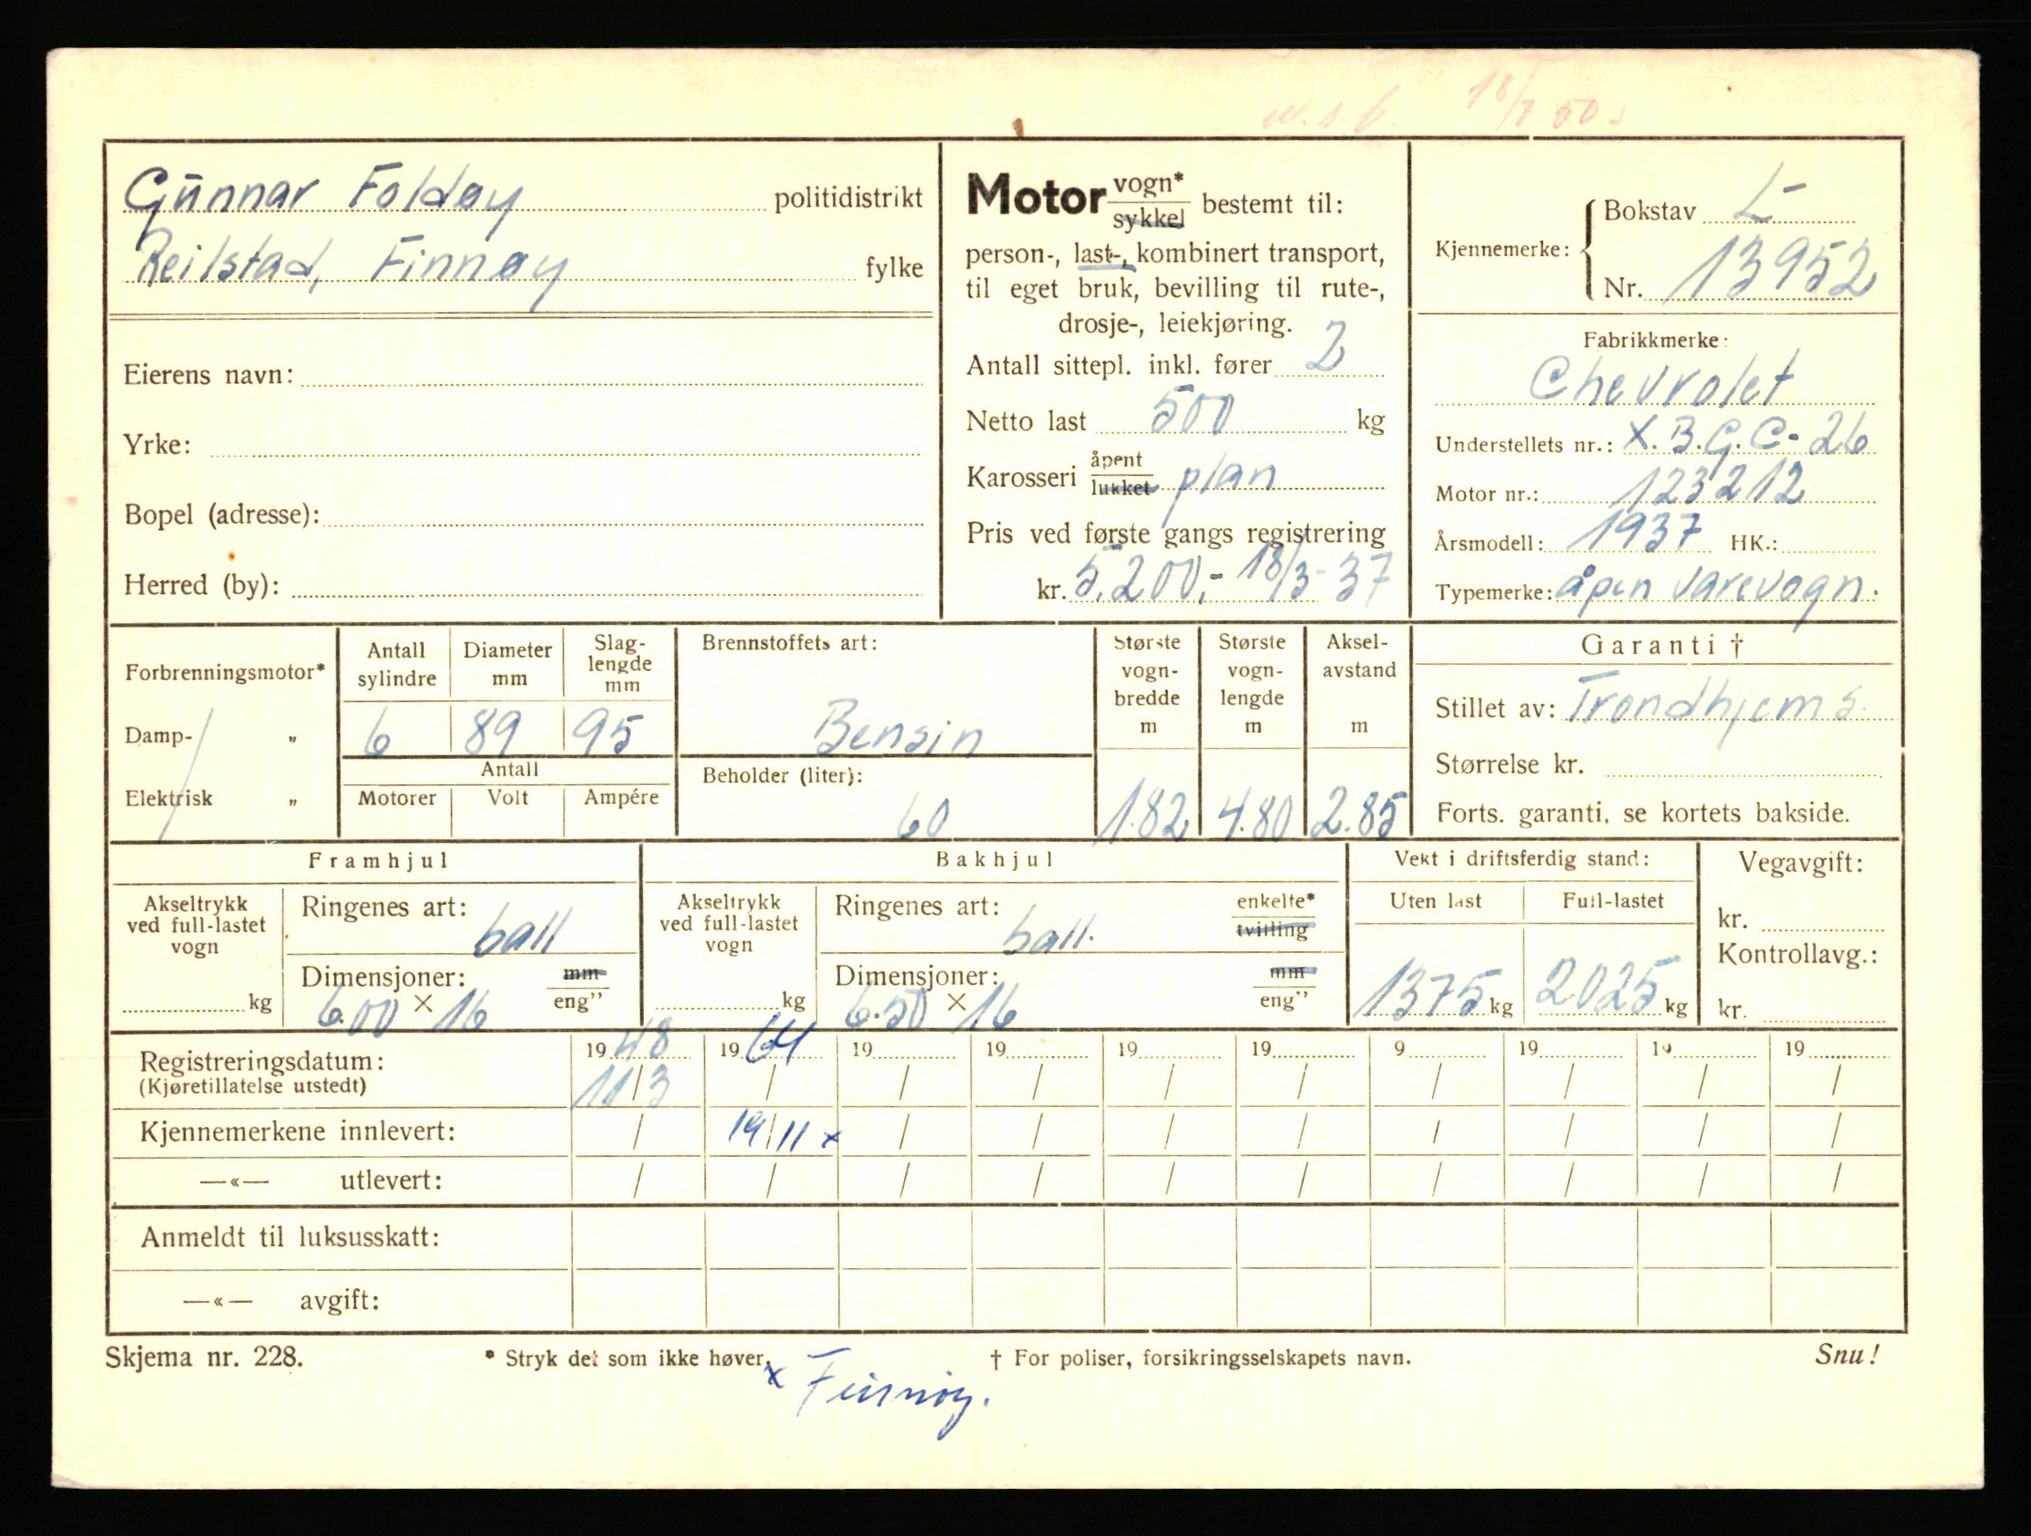 18/7 50
Gunnar Foldøy politidistrikt
Reilstad, Finnøy fylke
Eierens navn:
Yrke:
Bopel (adresse):
Herred (by):
Motor vogn* sykkel bestemt til:
person-, last-, kombinert transport,
til eget bruk, bevilling til rute-,
drosje-, leiekjøring.
Antall sittepl. inkl. fører 2
Netto last 500 kg
Karosseri åpent lukket plan
Pris ved første gangs registrering
kr. 5.200,- 18/3-37
Kjennemerke: Bokstav L
Nr. 13952
Fabrikkmerke:
Chevrolet
Understellets nr.: X.B.G.C-26
Motor nr.: 123212
Årsmodell: 1937 HK.:
Typemerke: åpen varevogn.
Forbrenningsmotor*
Damp- „
Elektrisk „
Antall sylindre
Diameter mm
Slag-lengde mm
6 89 95
Antall
Motorer Volt Ampére
Brennstoffets art:
Bensin
Beholder (liter):
60
Største vogn-bredde m
1.82
Største vogn-lengde m
4.80
Aksel-avstand m
2.85
Garanti †
Stillet av: Trondhjems
Størrelse kr.
Forts. garanti, se kortets bakside.
Framhjul
Akseltrykk ved full-lastet vogn
kg
Ringenes art: ball
Dimensjoner: mm eng”
6.00 × 16
Bakhjul
Akseltrykk ved full-lastet vogn
kg
Ringenes art: ball. enkelte* tvilling
Dimensjoner: mm eng”
6.50 × 16
Vekt i driftsferdig stand:
Uten last Full-lastet
1375 kg 2025 kg
Vegavgift:
kr.
Kontrollavg.:
kr.
Registreringsdatum: 1948 1964 19 19 19 19 9 19 19 19
(Kjøretillatelse utstedt) 11/3 / / / / / / / / /
Kjennemerkene innlevert: / 19/11 x / / / / / / / /
—«— utlevert: / / / / / / / / / /
Anmeldt til luksusskatt:
—«— avgift:
Skjema nr. 228. * Stryk det som ikke høver. † For poliser, forsikringsselskapets navn. Snu!
x Finnøy.